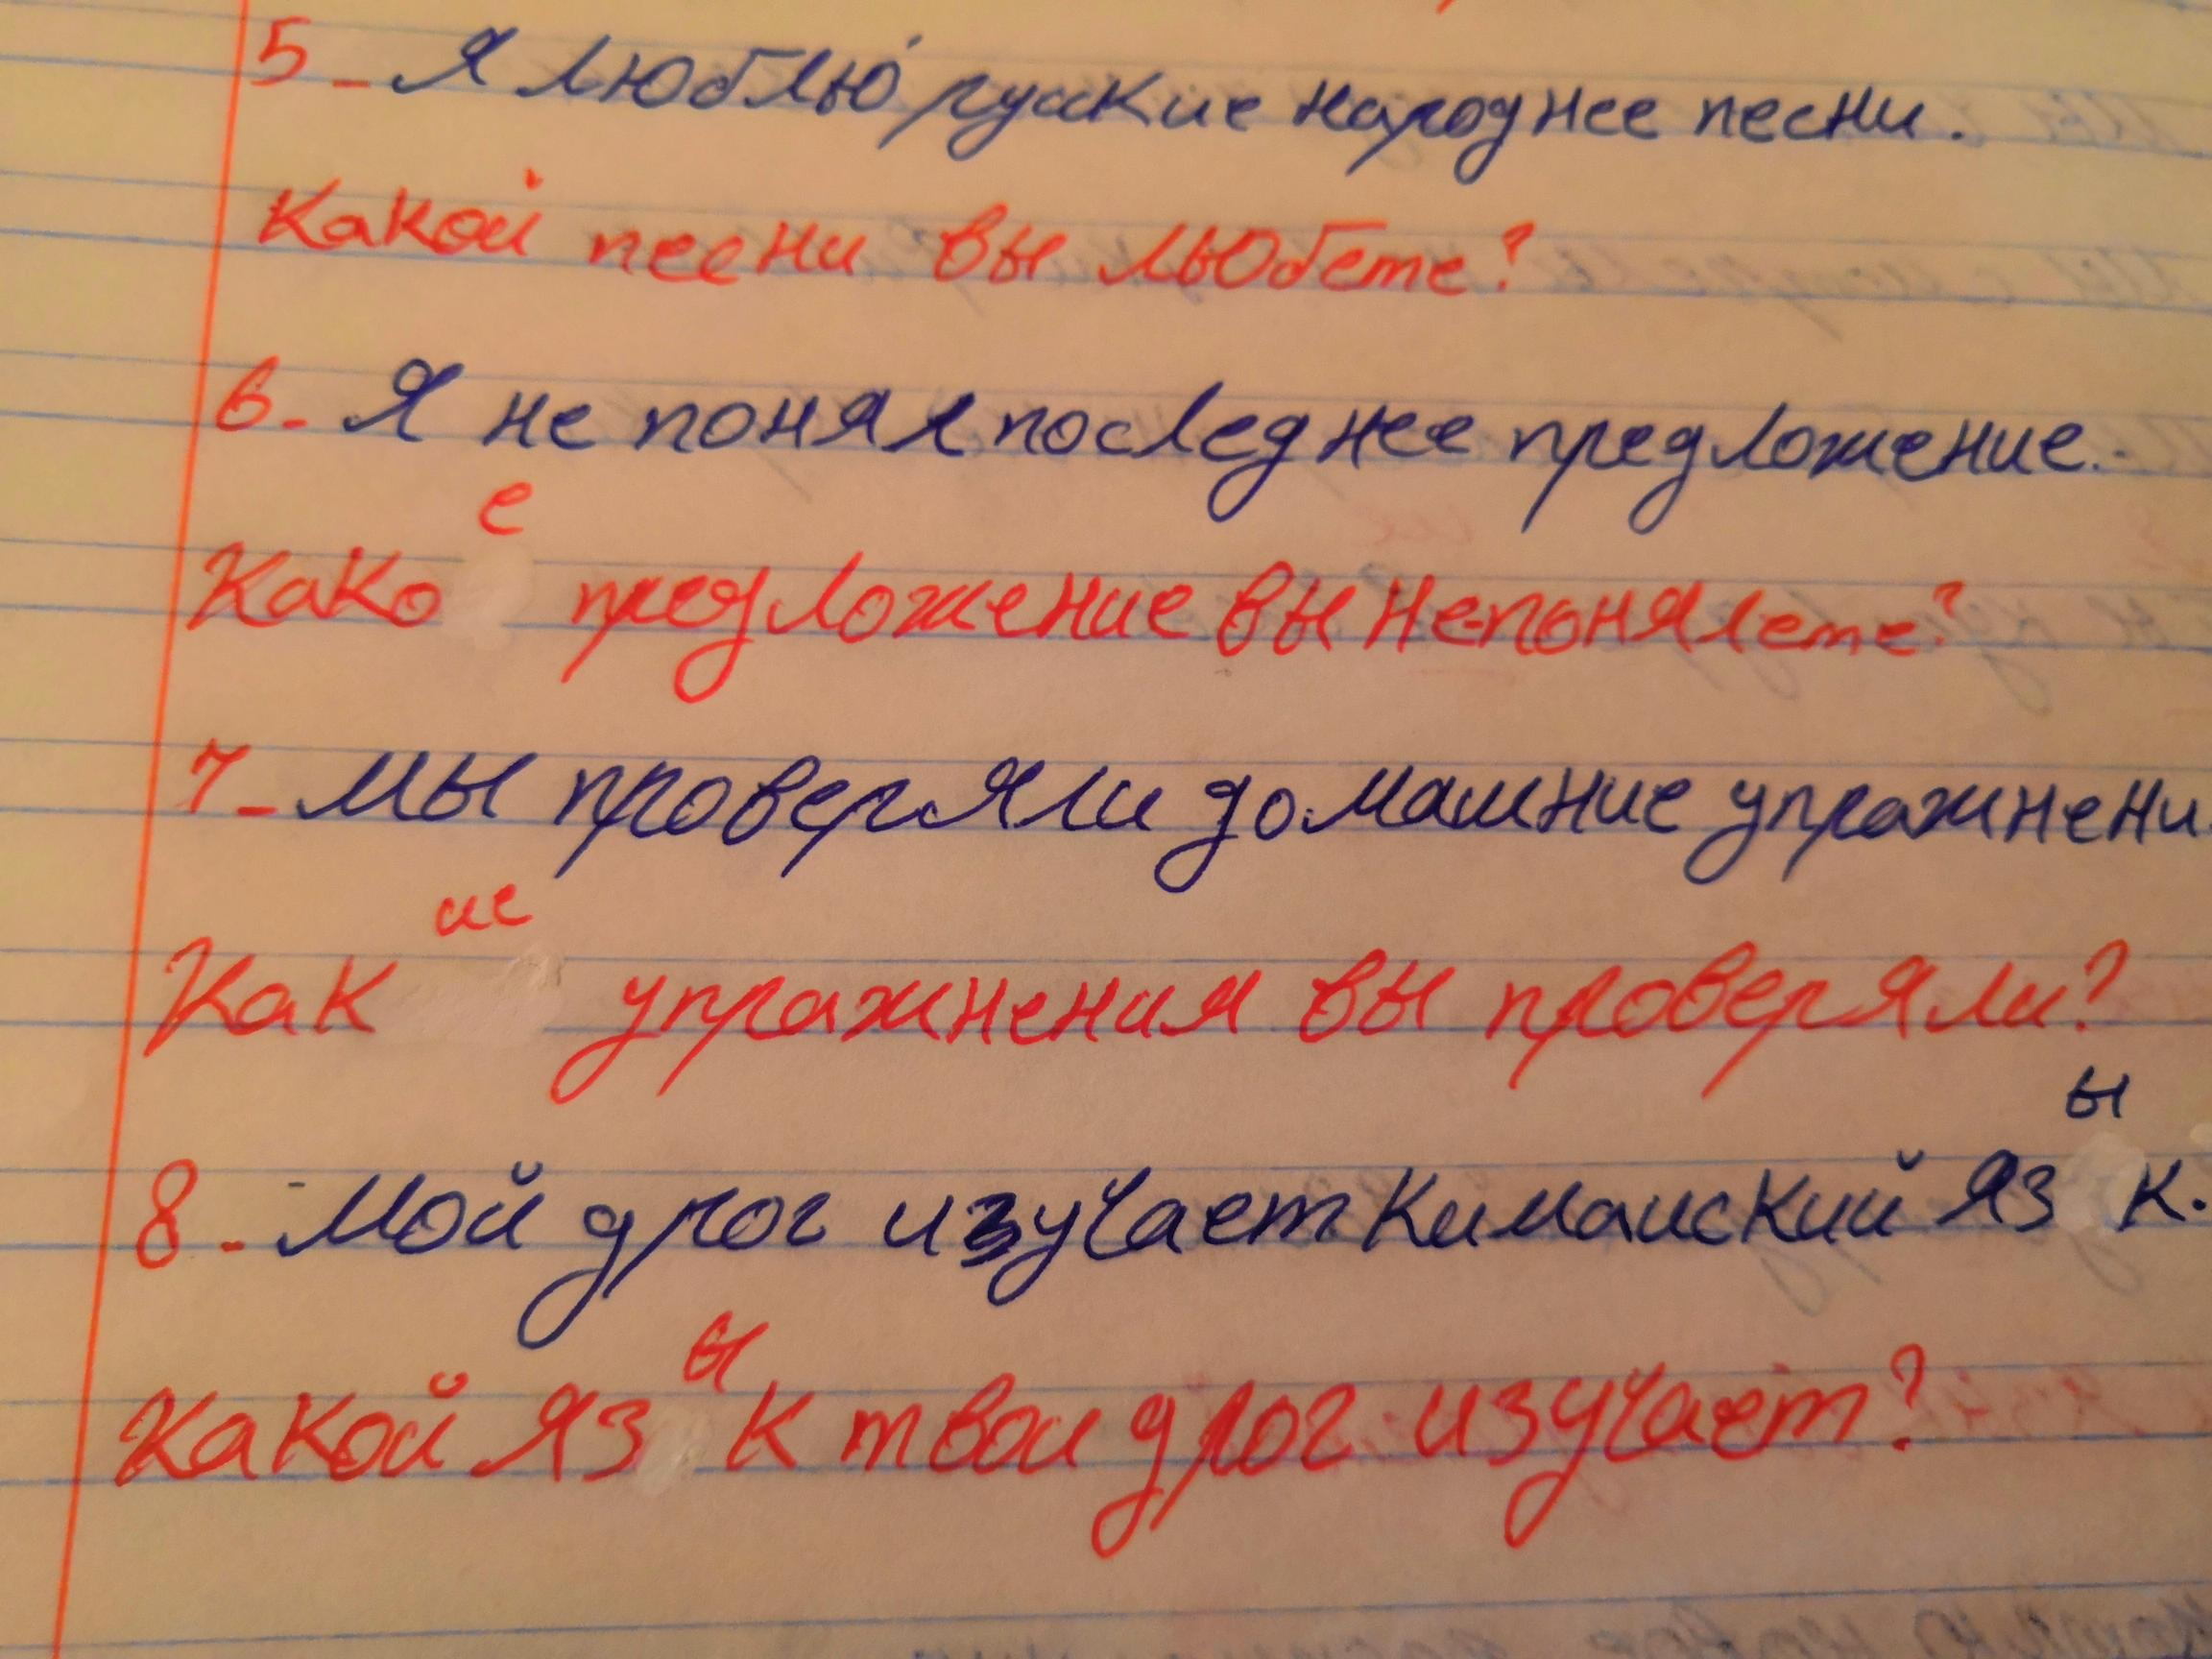 5 - Я люблю русские народнее песни.
Какой песни вы льюбете?
6. Я не понял последнее предложение.
Какое предложение вы не-понялете?
7 - Мы проверяли домашние упражнени
Какие упражнения вы проверяли?
8. Мой дрог изучает Китаиский язык.
Какой язык твои дрог изучает?